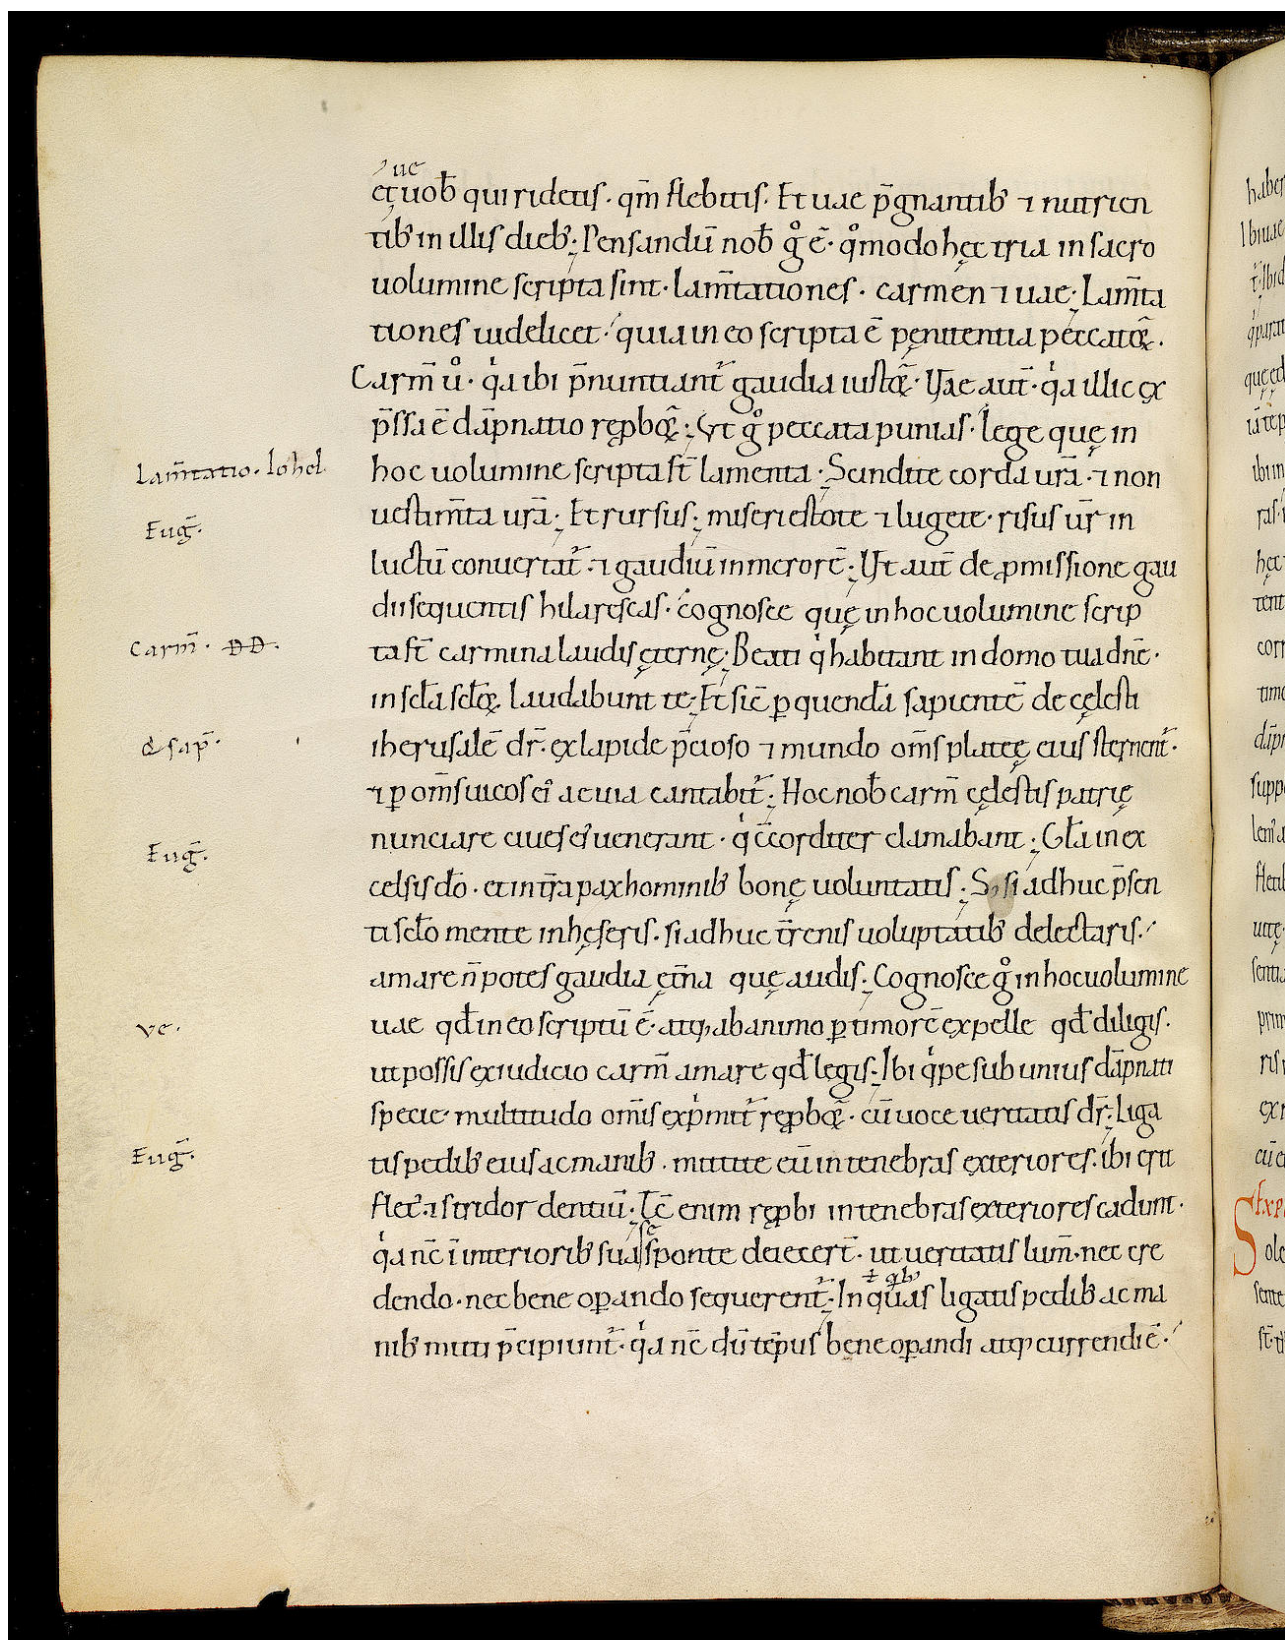 ue
et uob̄ qui ridetis · qm̄ flebitis · Et uae p̄gnantib; ⁊ nutrien
tib; in illis dieb; Pensandū nob̄ g̊ ē · q̊modo hęc tria in sacro
uolumine scripta sint · Lam̄tationes · carmen ⁊ uae · Lam̄ta
tiones uidelicet · quia in eo scripta ē pęnitentia peccatoꝝ ·
Carm̄ ů · q̇a ibi p̄nuntiant᷑ gaudia iustoꝝ · Uae aut̄ · q̇a illic ex
p̄ssa ē dāpnatio rępboꝝ ; Ut g̊ peccata punias · lege quę in
hoc uolumine scripta st̄ lamenta · Scindite corda urā · ⁊ non
uestim̄ta urā ; Et rursus ; miseri estote ⁊ lugete · risus ur̄ in
luctū conuertat᷑ · ⁊ gaudiū in merorē ; Ut aut̄ de ꝓmissione gau
dii sequentis hilarescas · cognosce quę in hoc uolumine scrip
ta st̄ carmina laudis ęternę ; Beati q̇ habitant in domo tua dn̄e ·
in scła scłoꝝ laudabunt te ; Et sic̄ ꝑ quendā sapientē de cęlesti
iherusalē dr̄ · ex lapide p̄cioso ⁊ mundo om̄s plateę eius sternent᷑ ·
⁊ ꝑ om̄s uicos ei᷒ ac uia cantabit᷑ ; Hoc nob̄ carm̄ cęlestis patrię
nunciare ciues ei᷒ uenerant · q̇ c̄corditer clamabant ; Gła in ex
celsis do̅ · et in tr̄a pax hominib; bonę uoluntatis ; S; si adhuc p̄sen
ti scło mente inhęseris · si adhuc tr̄renis uoluptatib; delectaris ·
amare n̄ potes gaudia ęt̄na quę audis ; Cognosce g̊ in hoc uolumine
uae qd̄ in eo scriptū ē · atq; ab animo ꝑ timorē expelle qd̄ diligis ·
ut possis ex iudicio carm̄ amare qd̄ legis ; Ibi q̇pe sub unius dāpnati
specie · multitudo om̄is exp̓mit᷑ rępboꝝ · cū uoce ueritatis dr̄ ; Liga
tis pedib; eius ac manib; · mittite eū in tenebras exteriores · ibi erit
flet᷒ ⁊ stridor dentiū ; Tc̄ enim rępbi in tenebras exteriores cadunt ·
sę
q̇a nc̄ ī interiorib; sua sponte deiecert̄ · ut ueritatis lum̄ · nec cre
ł qib;
dendo · nec bene oꝑando sequerent᷑ · In quas ligatis pedib; ac ma
nib; mitti p̄cipiunt᷑ · q̇a nc̄ dū tēpus bene oꝑandi atq; currendi ē ·
Lam̄tatio · Iohel
Eug̅ ·
Carm̄ · DD ·
& sap̄ ·
Eug̅ ·
ve ·
Eug̅ ·